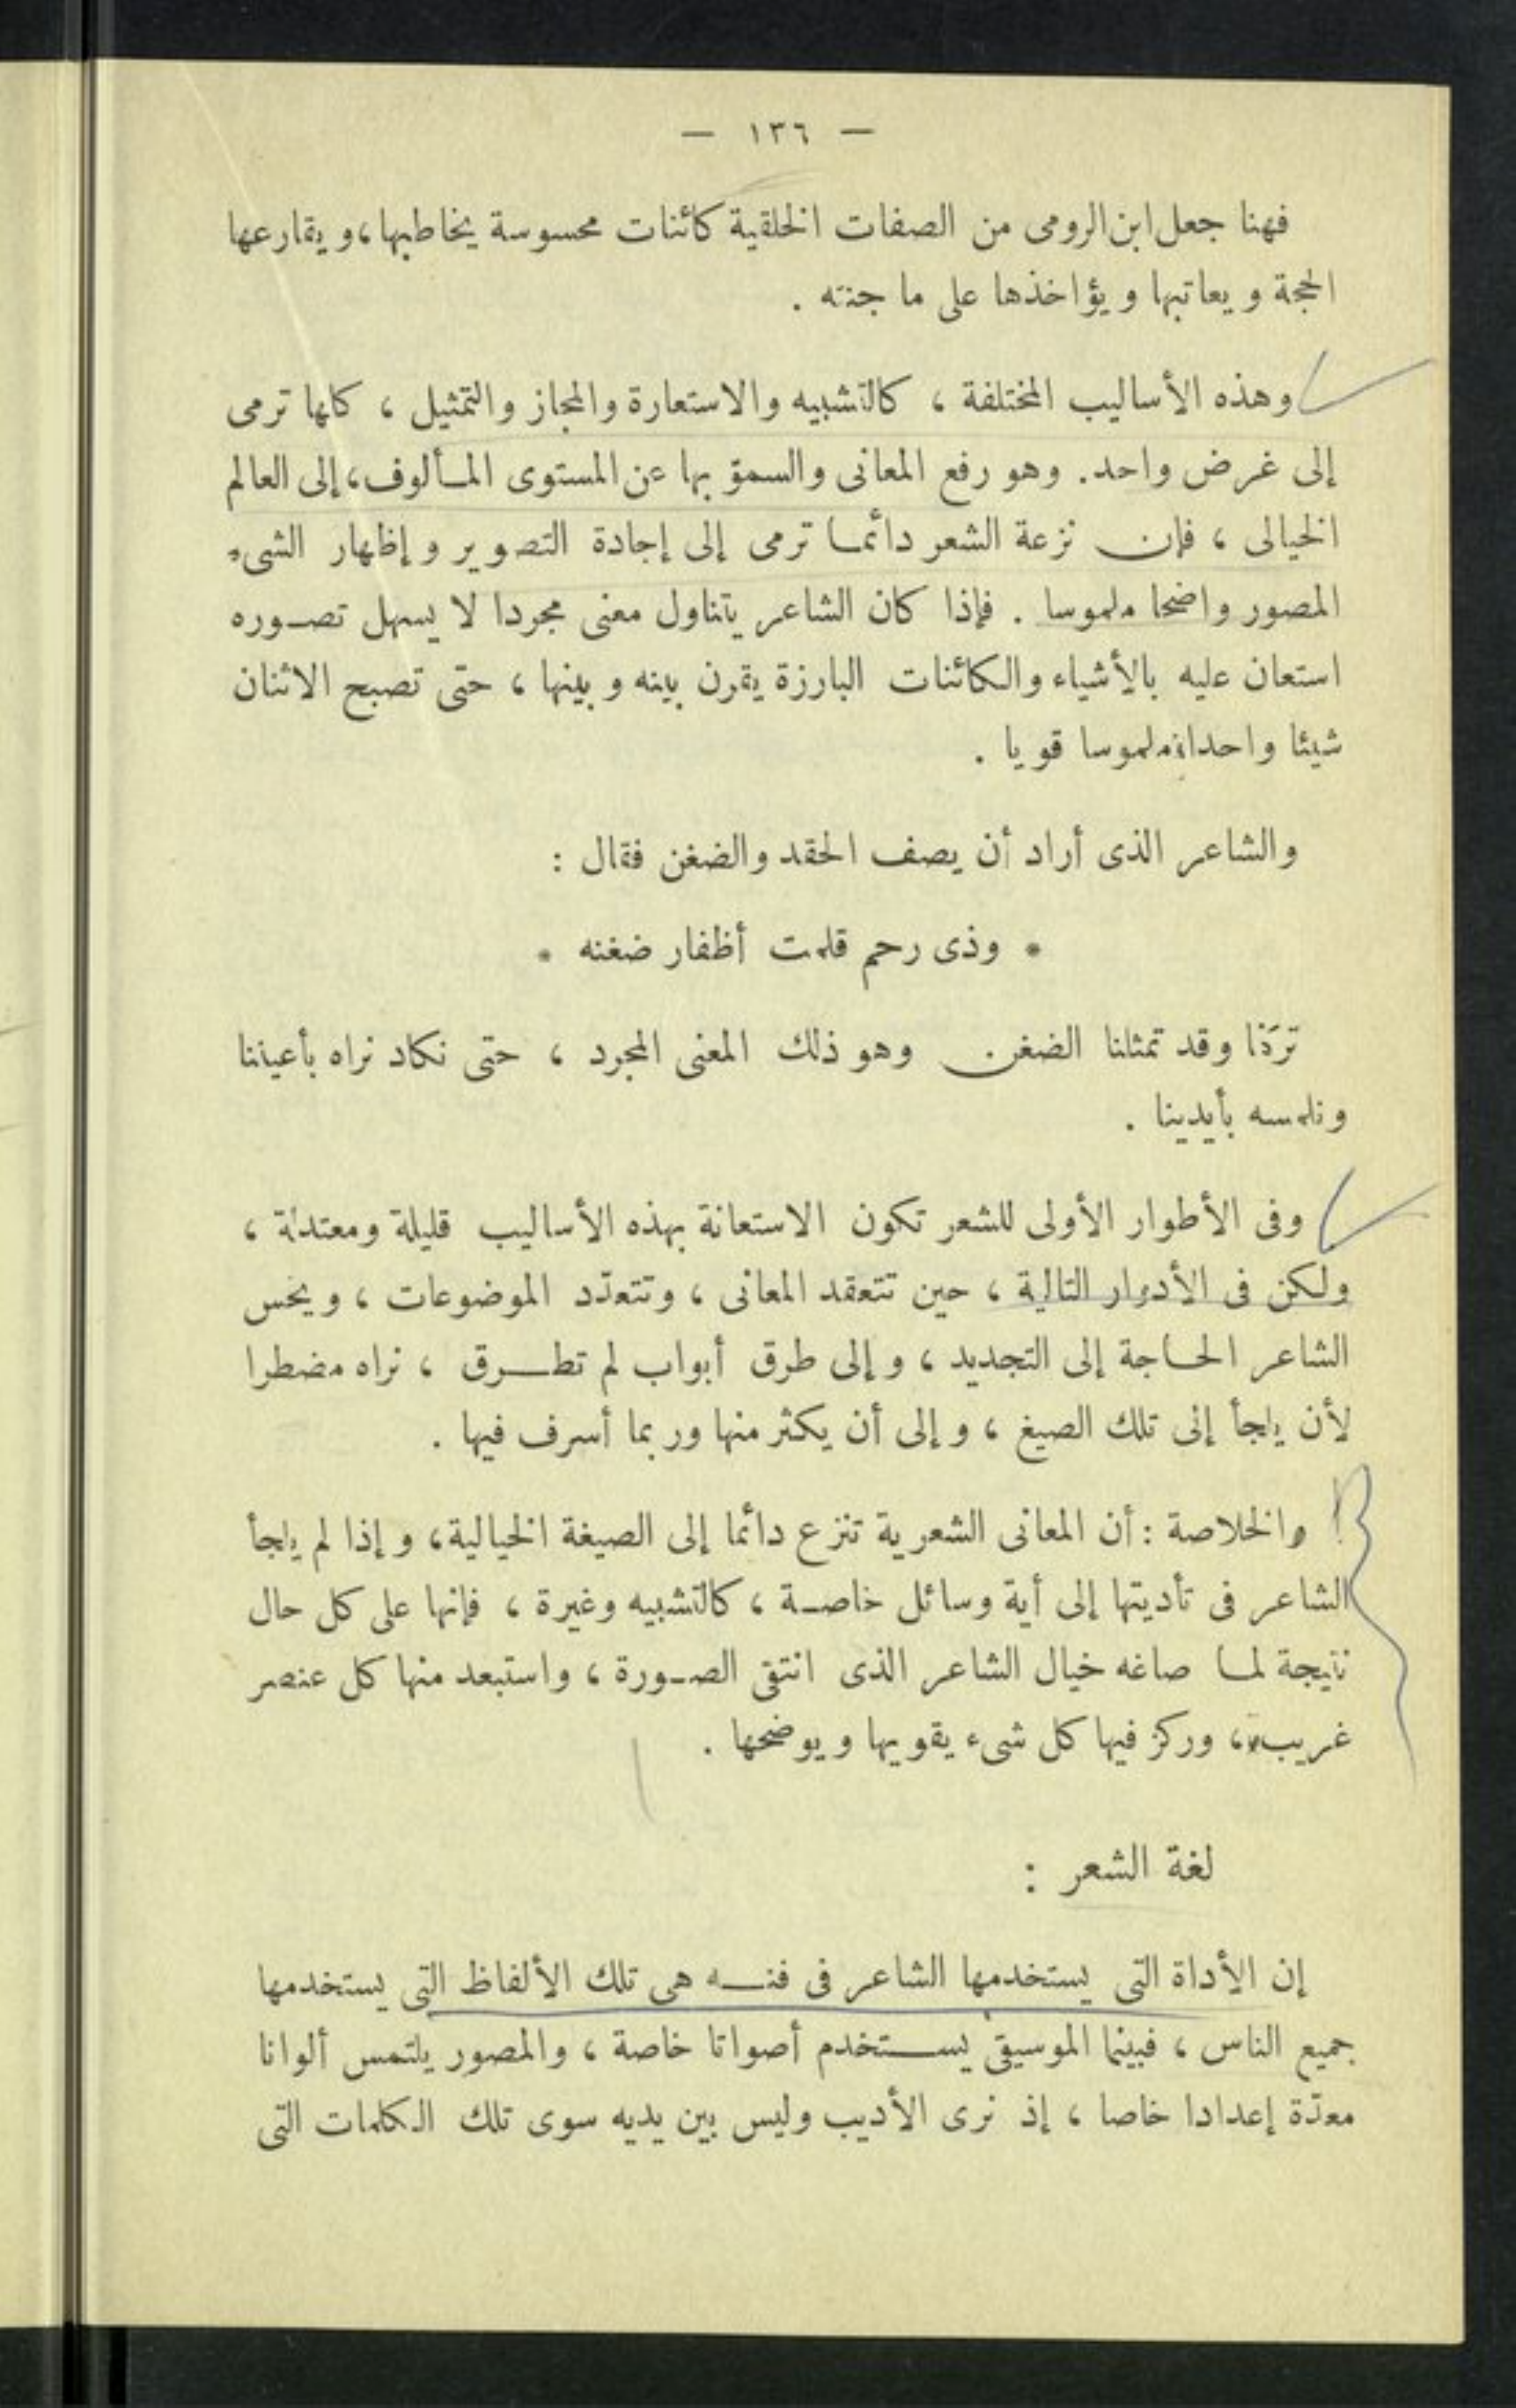 — ١٣٦ —
فهنا جعل ابن الرومى من الصفات الخلقية كائنات محسوسة يخاطبها، و يقارعها
الحجة و يعاتبها و يؤاخذها على ما جنته .
وهذه الأساليب المختلفة ، كالتشبيه والاستعارة والمجاز والتمثيل ، كلها ترمى
إلى غرض واحد. وهو رفع المعانى والسموّ بها عن المستوى المألوف، إلى العالم
الخيالى ، فإن نزعة الشعر دائما ترمى إلى إجادة التصوير و إظهار الشىء
المصور واضحا ملموسا . فإذا كان الشاعر يتناول معنى مجردا لا يسهل تصوره
استعان عليه بالأشياء والكائنات البارزة يقرن بينه و بينها ، حتى تصبح الاثنان
شيئا واحدا ملموسا قويا .
والشاعر الذى أراد أن يصف الحقد والضغن فقال :
* وذى رحم قلمت أظفار ضغنه *
تركَنا وقد تمثلنا الضغن وهو ذلك المعنى المجرد ، حتى نكاد نراه بأعيننا
ونلمسه بأيدينا .
وفى الأطوار الأولى للشعر تكون الاستعانة بهذه الأساليب قليلة ومعتدلة ،
ولكن فى الأدوار التالية ، حين تتعقد المعانى ، وتتعدّد الموضوعات ، و يحس
الشاعر الحاجة إلى التجديد ، و إلى طرق أبواب لم تطرق ، نراه مضطرا
لأن يلجأ إلى تلك الصيغ ، و إلى أن يكثر منها وربما أسرف فيها .
والخلاصة : أن المعانى الشعرية تنزع دائما إلى الصيغة الخيالية، و إذا لم يلجأ
الشاعر فى تأديتها إلى أية وسائل خاصة ، كالتشبيه وغيرة ، فإنها على كل حال
نتيجة لما صاغه خيال الشاعر الذى انتقى الصورة ، واستبعد منها كل عنصر
غريب، وركز فيها كل شىء يقويها و يوضحها .
لغة الشعر :
إن الأداة التى يستخدمها الشاعر فى فنه هى تلك الألفاظ التى يستخدمها
جميع الناس ، فبينما الموسيقى يستخدم أصواتا خاصة ، والمصور يلتمس ألوانا
معدّة إعدادا خاصا ، إذ نرى الأديب وليس بين يديه سوى تلك الكلمات التى